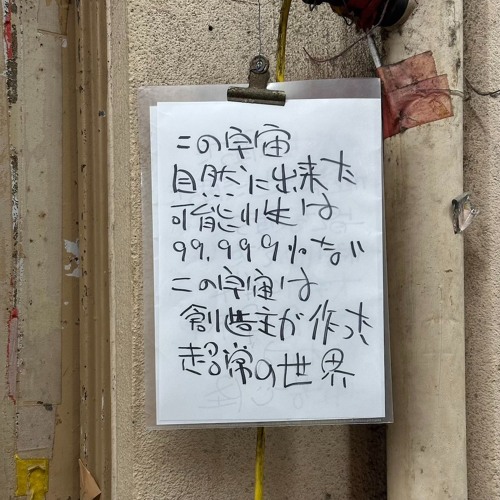 この宇宙
自然に出来た
可能性は
99.999%ない
この宇宙は
創造主が作った
超常の世界